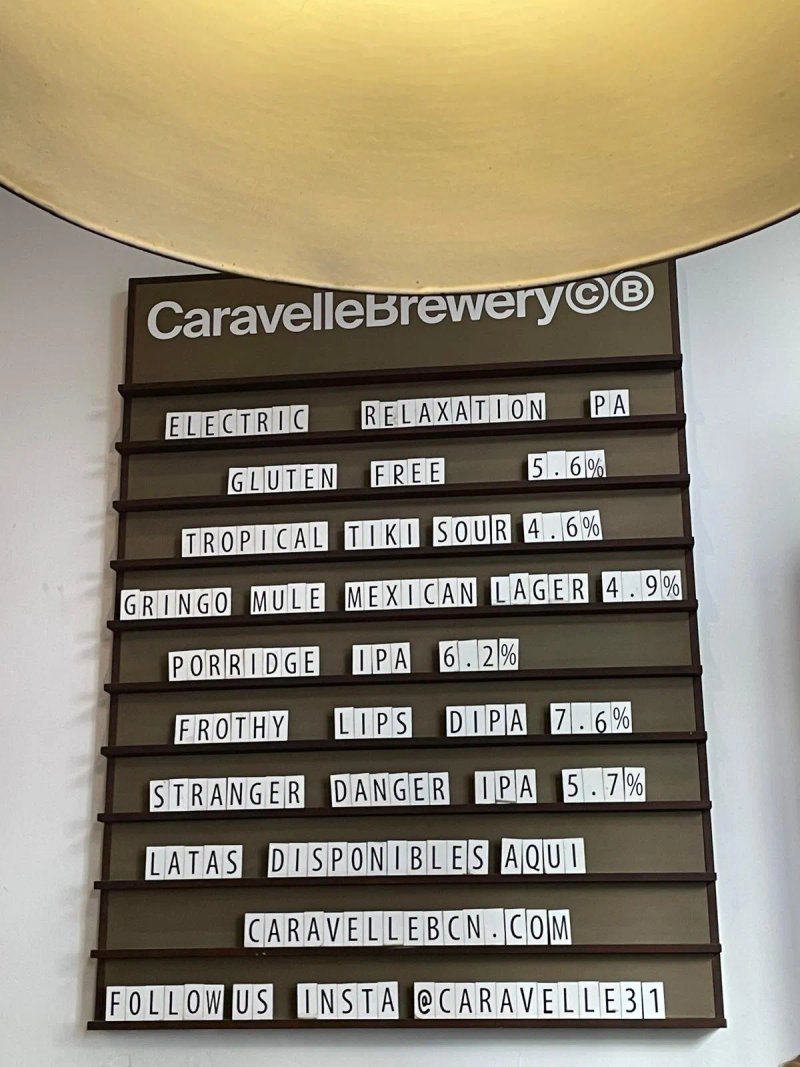 CaravelleBrewery©Ⓑ
ELECTRIC RELAXATION PA
GLUTEN FREE 5.6%
TROPICAL TIKI SOUR 4.6%
GRINGO MULE MEXICAN LAGER 4.9%
PORRIDGE IPA 6.2%
FROTHY LIPS DIPA 7.6%
STRANGER DANGER IPA 5.7%
LATAS DISPONIBLES AQUI
CARAVELLEBCN.COM
FOLLOW US INSTA @CARAVELLE31